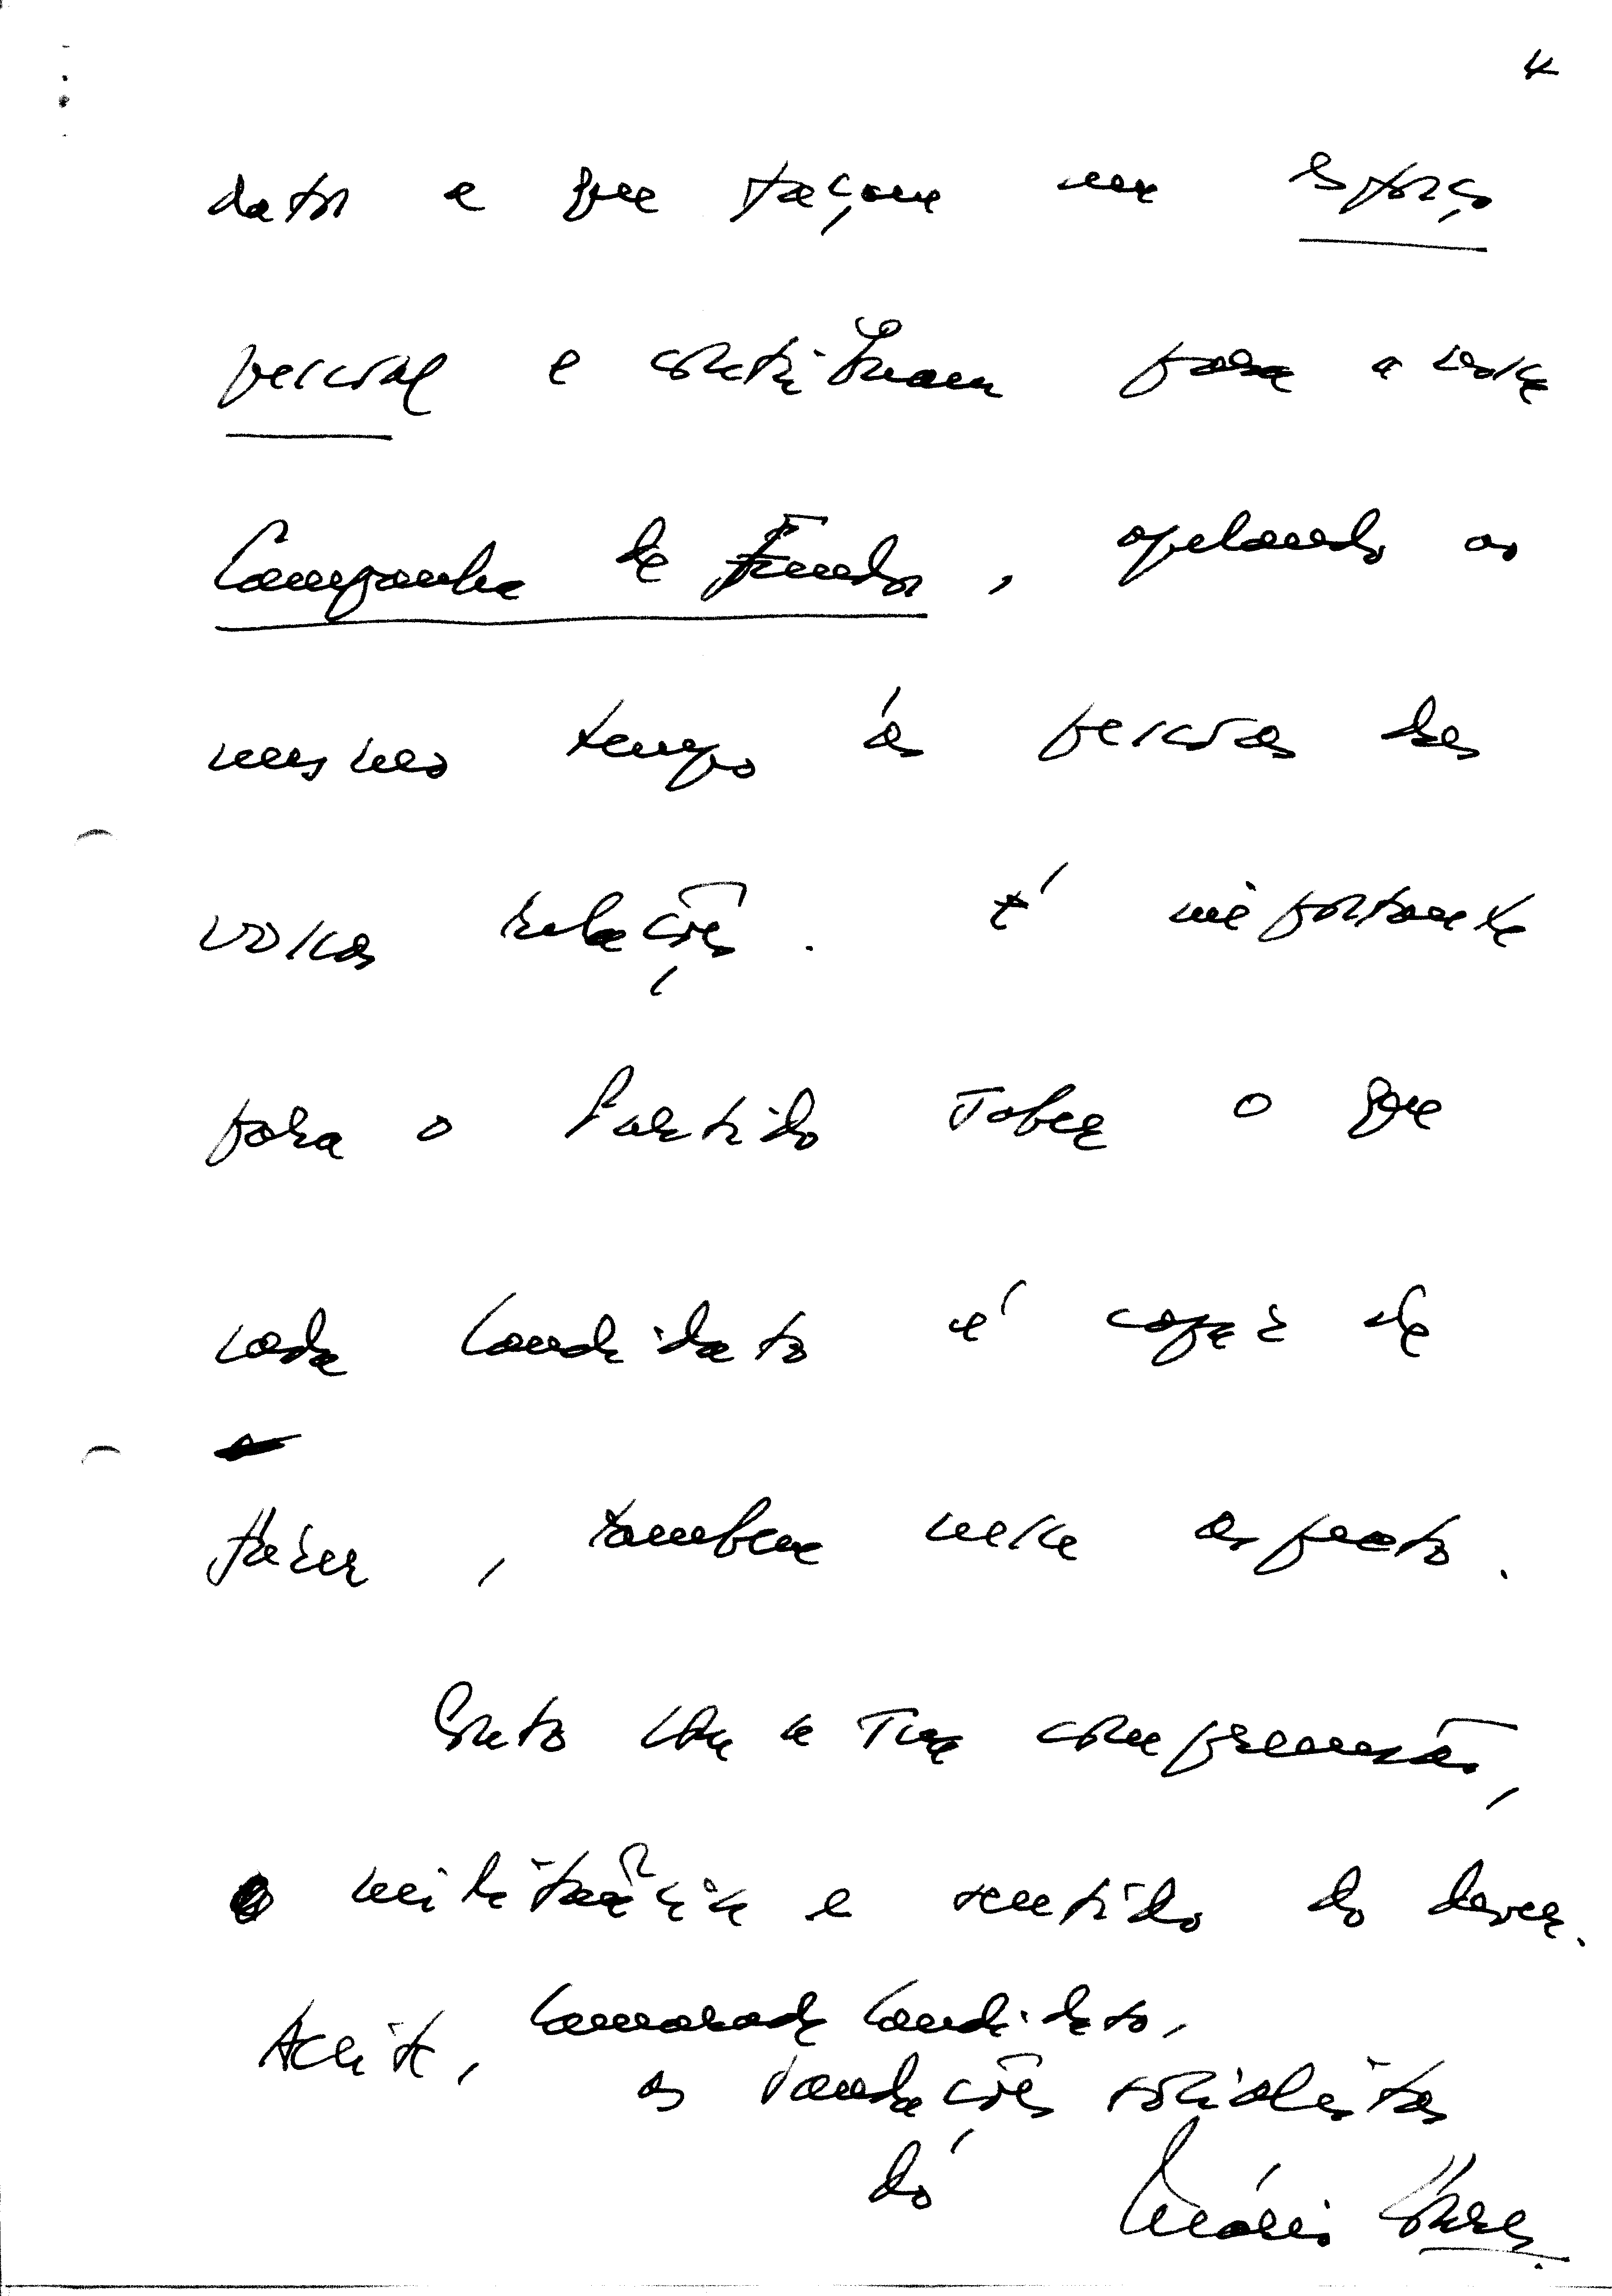 4
datos e que façam um esforço
pessoal e contribuam para a nossa
Campanha de Fundos, apelando ao
mesmo tempo às pessoas das
vossas relações. É importante
para o Partido saber o que
cada Candidato é capaz de
fazer, tambem nesse aspecto.
Conto com a tua compreensão,
militância e sentido do dever.
Aceita, Camarada Candidato,
as saudações socialistas
do Mário Soares